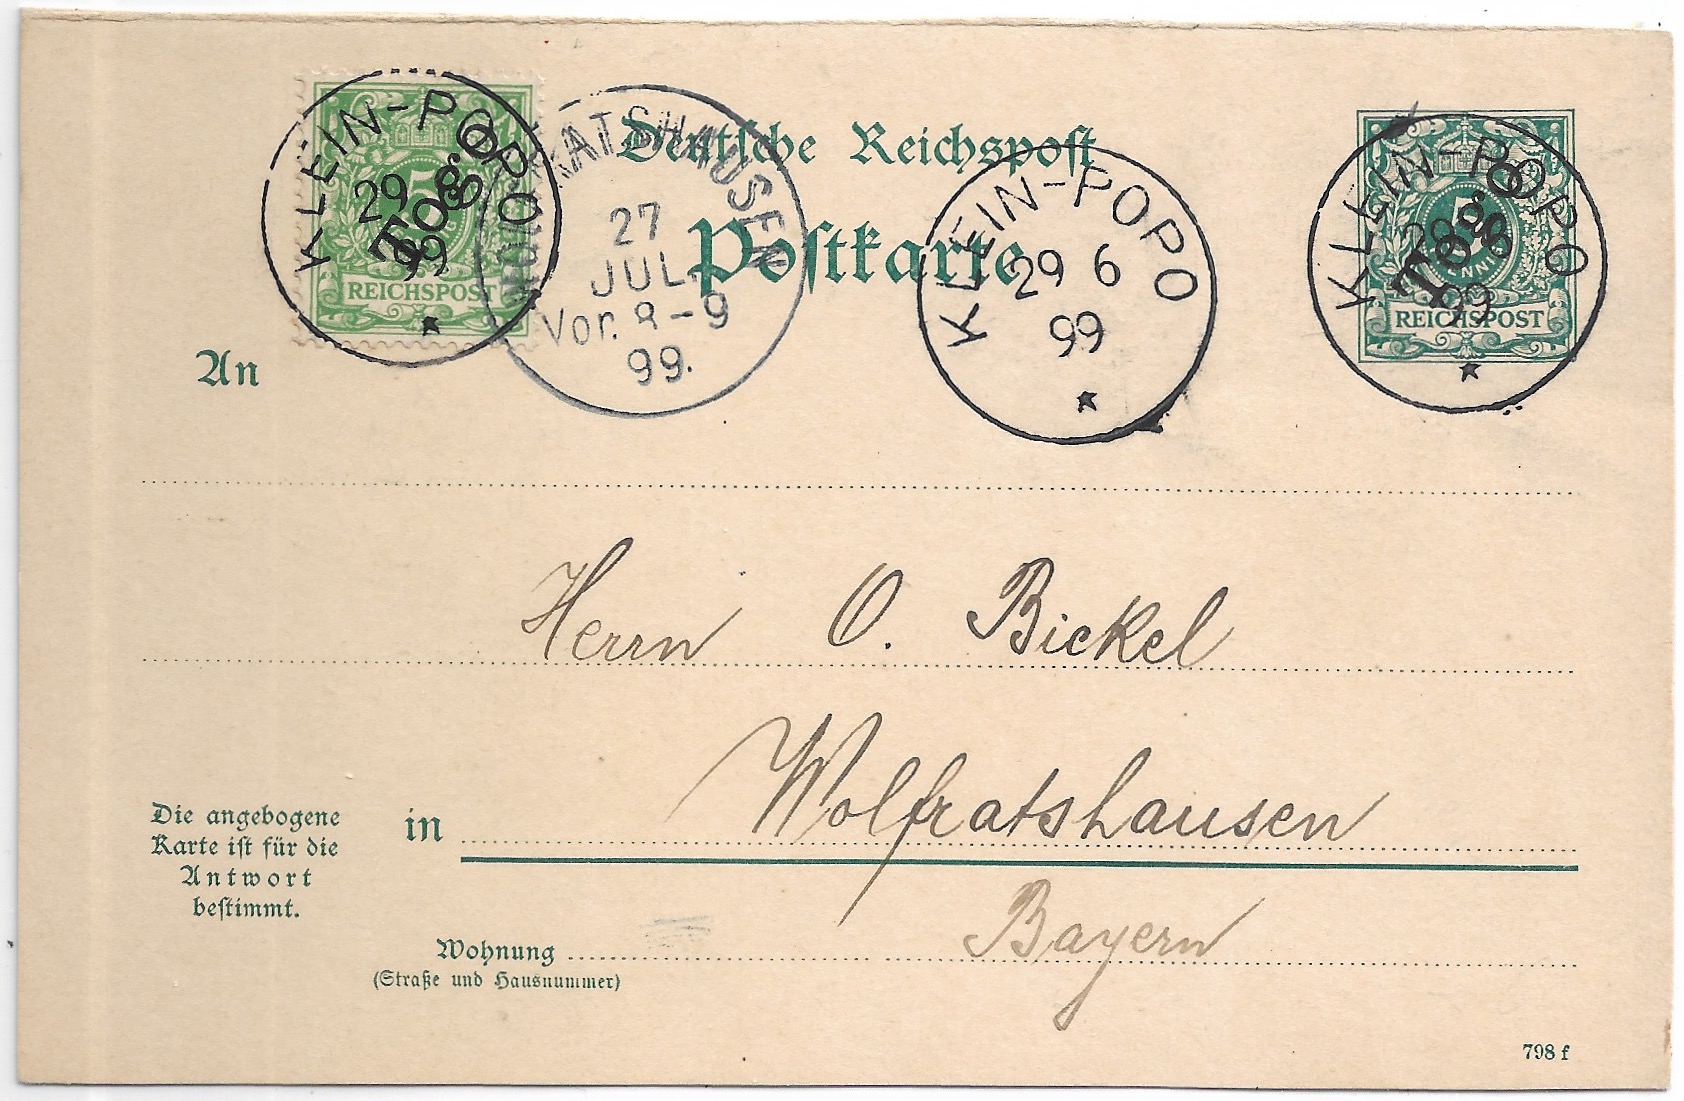 KLEIN-POPO
29 6
99
Togo
5
REICHSPOST
WOLFRATSHAUSEN
27
JUL.
Vor. 8-9
99.
Deutsche Reichspost
Postkarte
KLEIN-POPO
29 6
99
KLEIN-POPO
29 6
99
Togo
5
PFENNIG
REICHSPOST
An
Herrn O. Bickel
in Wolfratshausen
Bayern
Die angebogene
Karte ist für die
Antwort
bestimmt.
Wohnung
(Straße und Hausnummer)
798 f